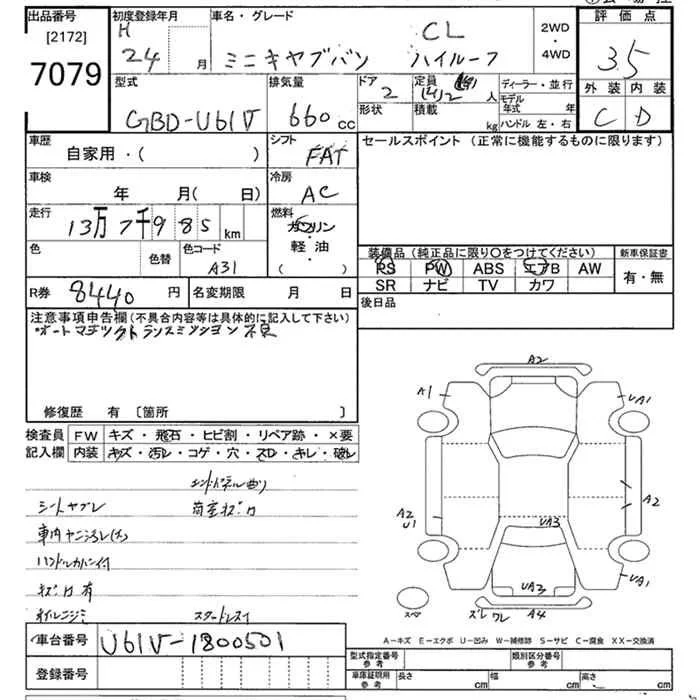 出品番号 初度登録年月 車名・グレード 評価点
[2172] H CL 2WD
7079 24 月 ミニキャブバン ハイルーフ ・ 4WD 35
型式 排気量 ドア 2 定員 人 ディーラー・並行 外装 内装
GBD-U61V 660 cc 形状 積載 kg モデル年式 年 C D
ハンドル 左・右
車歴 自家用・( ) シフト FAT セールスポイント (正常に機能するものに限ります)
車検 年 月(日) 冷房 AC
走行 13万7千985 km 燃料 ガソリン
色 色替 色コード A31 軽・油
( ・ )
装備品(純正品に限り○をつけてください) 新車保証書
PS PW ABS エアB AW 有・無
SR ナビ TV カワ
R券 8440 円 名変期限 月 日 後日品
注意事項申告欄(不具合内容等は具体的に記入して下さい)
オートマチックトランスミッション 不良
修復歴 有 [箇所 ]
検査員 FW キズ・飛石・ヒビ割・リペア跡・×要
記入欄 内装 キズ・汚レ・コゲ・穴・スレ・キレ・破レ
エンドパネル曲り
シートヤブレ 荷室キズ
車内ヤニヨゴレ(大)
ハンドルカバー付
有
スタッドレス
A2
A1 UA1
A2 U1 A2
UA3
UA3 UA1
スペア ズレ ワレ A4
A-キズ E-エクボ U-凹み W-補修跡 S-サビ C-腐食 XX-交換済
車台番号 U61V-1800501
登録番号
型式指定番号 参考 類別区分番号 参考
車庫証明用 参考 長さ cm 幅 cm 高さ cm